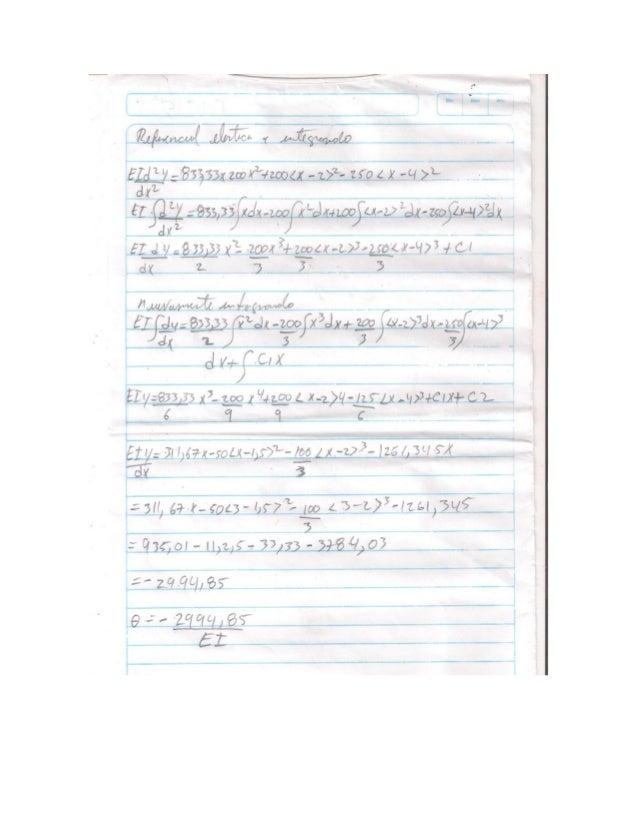 Referencial elastica e integrando
EId²y = 833,33x 200x²+200<x-2>²-250<x-4>²
dx²
EI∫d²y = 833,33∫xdx-200∫x²dx+200∫<x-2>²dx-250∫<x-4>²dx
dx²
EI dy = 833,33 x² - 200x³ + 200<x-2>³-250<x-4>³ + C1
dx 2 3 3 3
Nuevamente integrando
EI∫dy = 833,33∫x²dx-200∫x³dx + 200∫<x-2>³dx-250∫<x-4>³
dx 2 3 3 3
dx+∫C1X
EIy=833,33 x³-200 x⁴+200<x-2>4-125<x-4>³+C1X+C2
6 9 9 6
EIy = 311,67x-50<x-1,5>²-100<x-2>³-1261,345X
dx 3
=311,67.x-50<3-1,5>²-100<3-2>³-1261,345
3
=935,01-11,2,5-33,33-3784,03
=-29.94,85
θ=-2994,85
EI